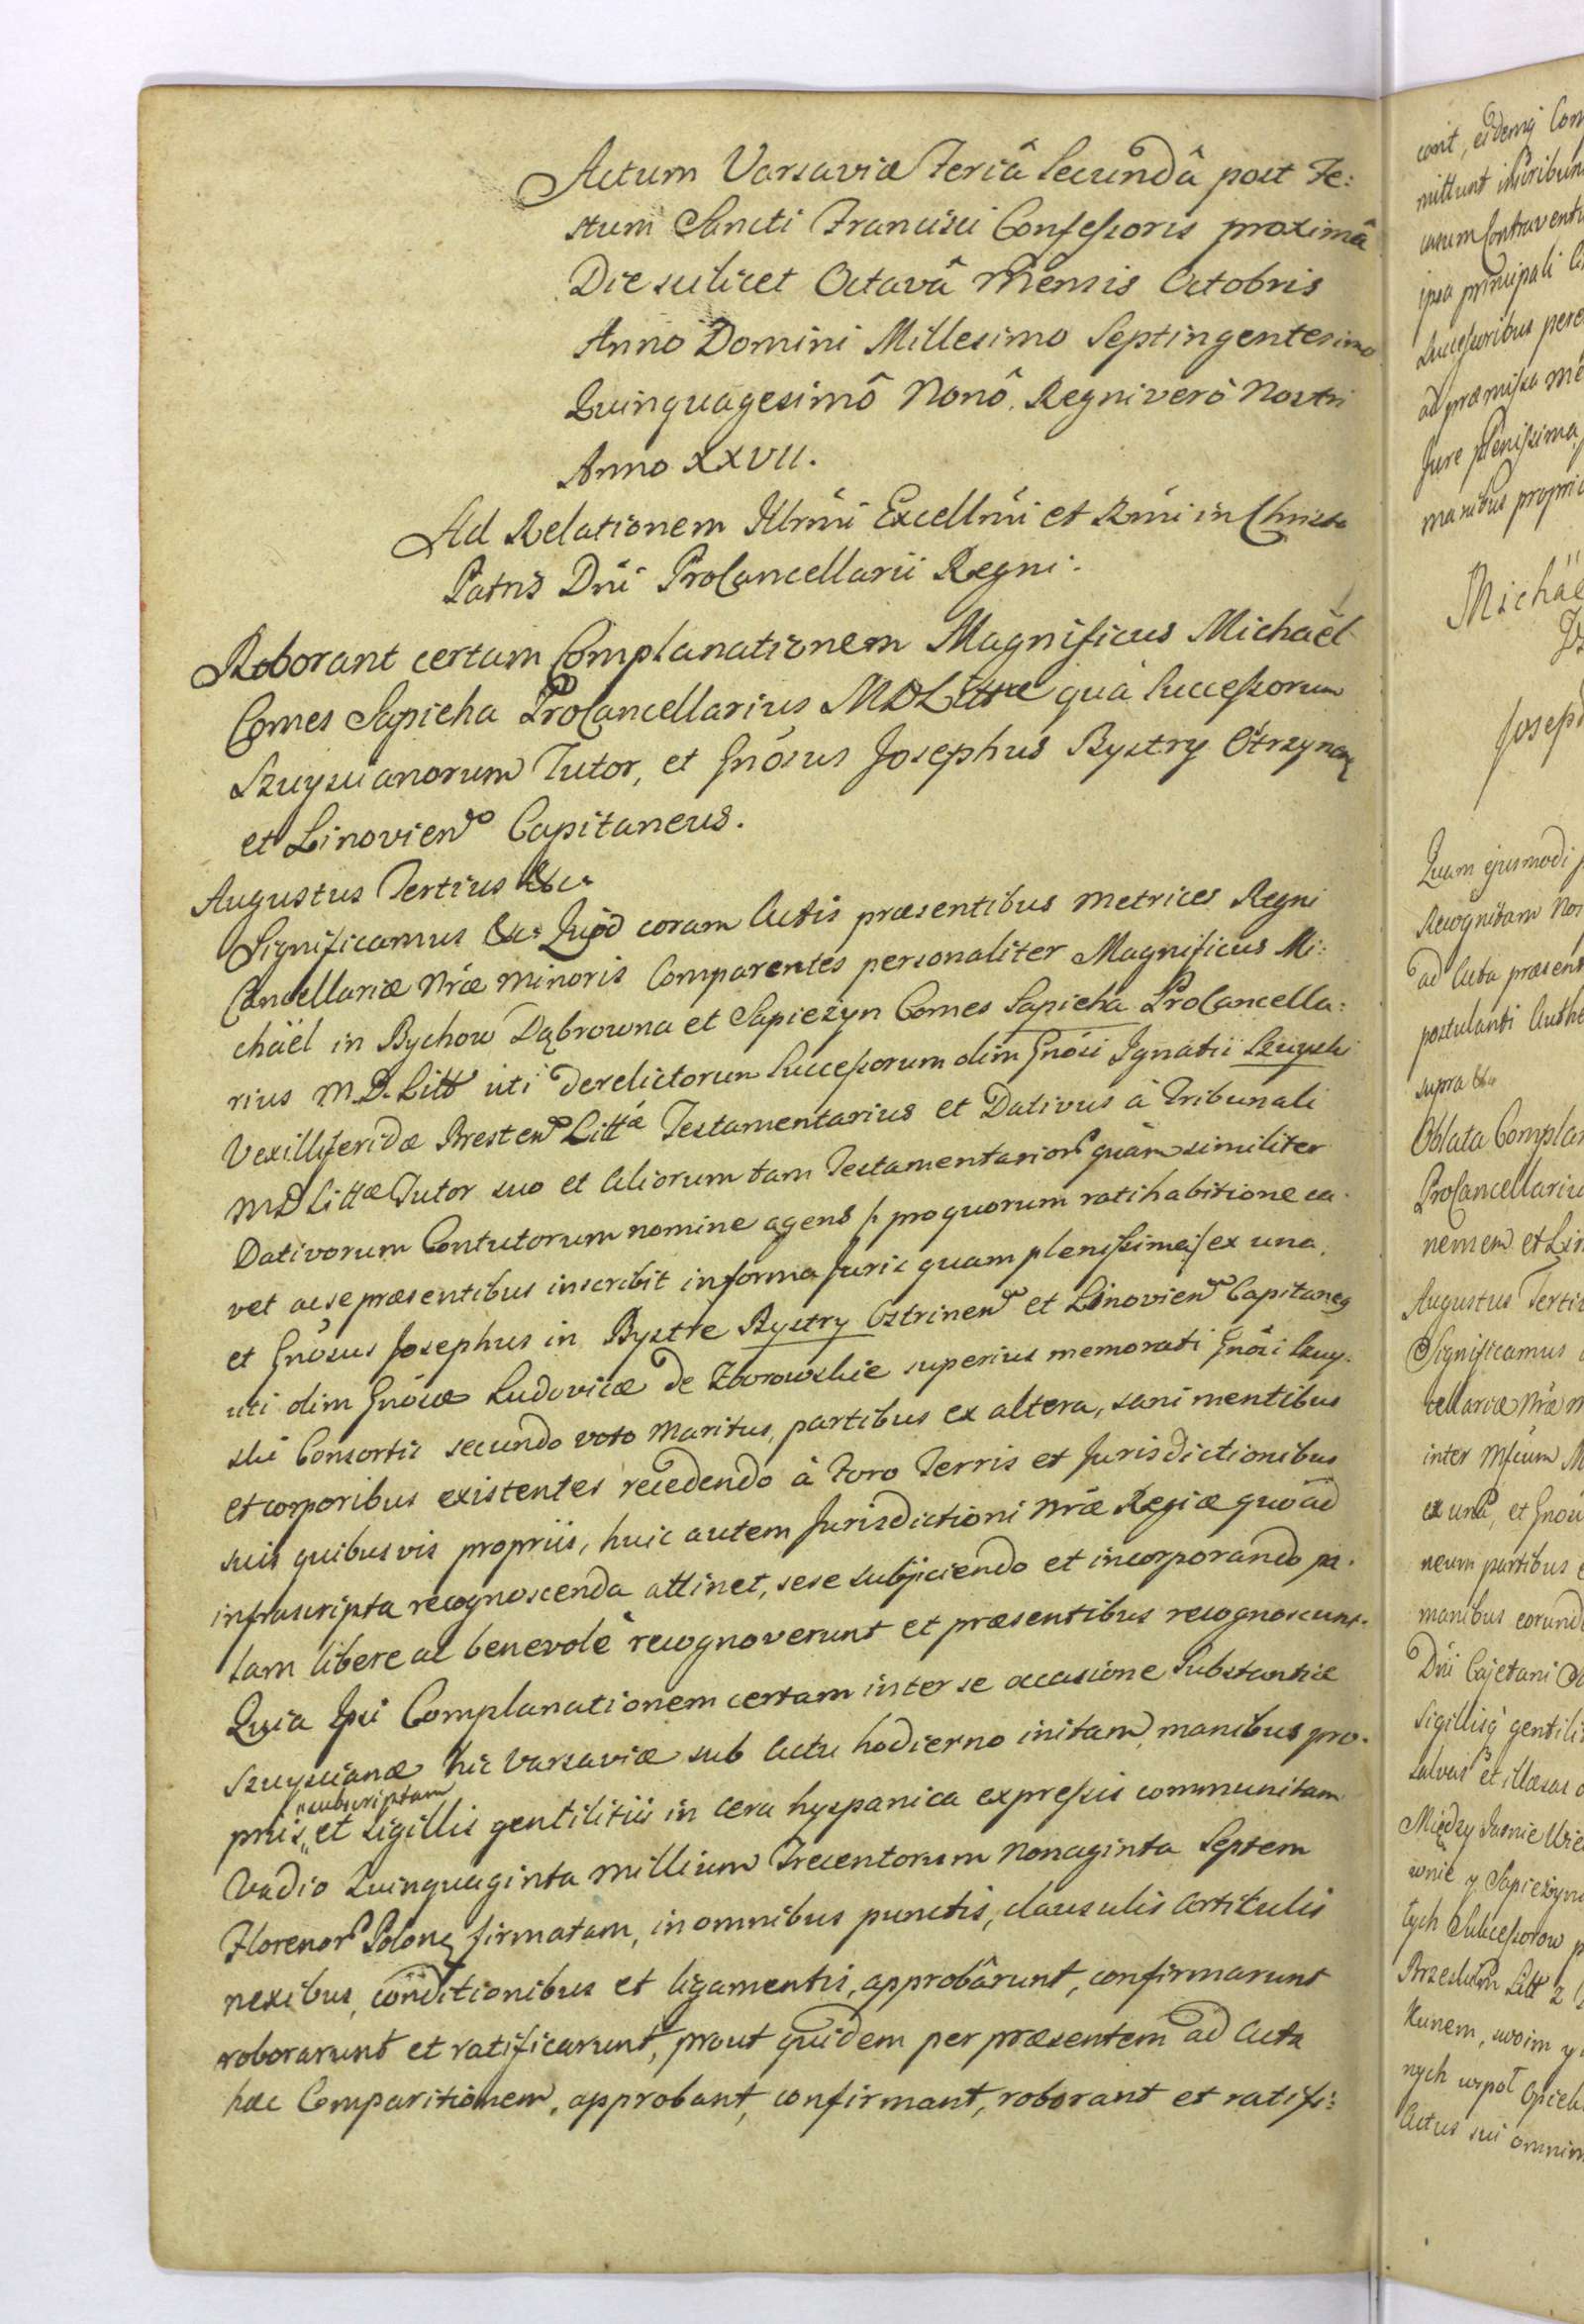 Actum Varsaviæ Feriâ Secundâ post Fe:
stum Sancti Francisci Confessoris proximâ
Die scilicet Octavâ Mensis Octobris
Anno Domini Millesimo Septingentesimo
Quinquagesimô Nonô. Regni verò Nostri
Anno XXVII.
Ad Relationem Illrmi Excellmi et Rmi in Christo
Patris Dni ProCancellarii Regni.
Roborant certam Complanationem Magnificus Michaël
Comes Sapieha ProCancellarius MDLittæ quà Successorum
Szuyscianorum Tutor, et Gnosus Josephus Bystry
et Linovien Capitaneus.
Augustus Tertius &c.
Significamus &c. Quod coram Actis præsentibus Metrices Regni
Cancellariæ Nræ Minoris Comparentes personaliter Magnificus Mi:
chaël in Bychow Dąbrowna et Sapieżyn Comes Sapieha ProCancella:
rius M.D. Litt uti derelictorum Successorum olim Gnosi Ignatii Szuyski
Vexilliferidæ Bresten Littæ Testamentarius et Dativus à Tribunali
MD Littæ Tutor suo et aliorum tam Testamentarior quàm similiter
Dativorum Contutorum nomine agens /: pro quorum ratihabitione ca.
vet ac se præsentibus inscribit in forma Juris quam plenissima :/ ex una.
et Gnosus Josephus in Bystre Bystry Ostrinen et Linovien Capitaneq
uti olim Gnosæ Ludovicæ de Zborowskie superius memorati Gnosi Szuy.
ski Consortis secundo voto Maritus, partibus ex altera, sani mentibus
et corporibus existentes recedendo à Foro Terris et Jurisdictionibus
suis quibusvis propriis, huic autem Jurisdictioni Nræ Regiæ quo ad
infrascripta recognoscenda attinet, sese subjiciendo et incorporando pa.
lam libere ac benevolè recognoverunt et præsentibus recognoscunt.
Quia Ipsi Complanationem certam inter se occasione Substantiæ
Szuyscianæ hic Varsaviæ sub Actu hodierno initam, manibus pro.
priis "subscriptam et sigillis gentilitiis in cera hyspanica expressis communitam
Vadio Quinquaginta Millium Trecentorum Nonaginta Septem
Florenor Polonq firmatam, in omnibus punctis, clausulis Articulis
nexibus, conditionibus et ligamentis, approbârunt, confirmarunt
roborarunt et ratificarunt, prout quidem per præsentem ad Acta
hæc Comparitionem, approbant, confirmant, roborant et ratifi:
cant, eidemq
mittunt
ipsa principali
Successoribus
ad præmissa
Jure plenissima
manibus
Quum ejusmodi
Recognitam
ad Acta
postulanti
supra &c
Oblata
Augustus
Significamus
inter
ex una, et
neum partibus
manibus
Dni Cajetani
Sigillisq
salvas et illæsas
Między Jasnie
wnie y
tych Sukcessorow
Litt z
Kunem, swoim y
nych
Actus sui